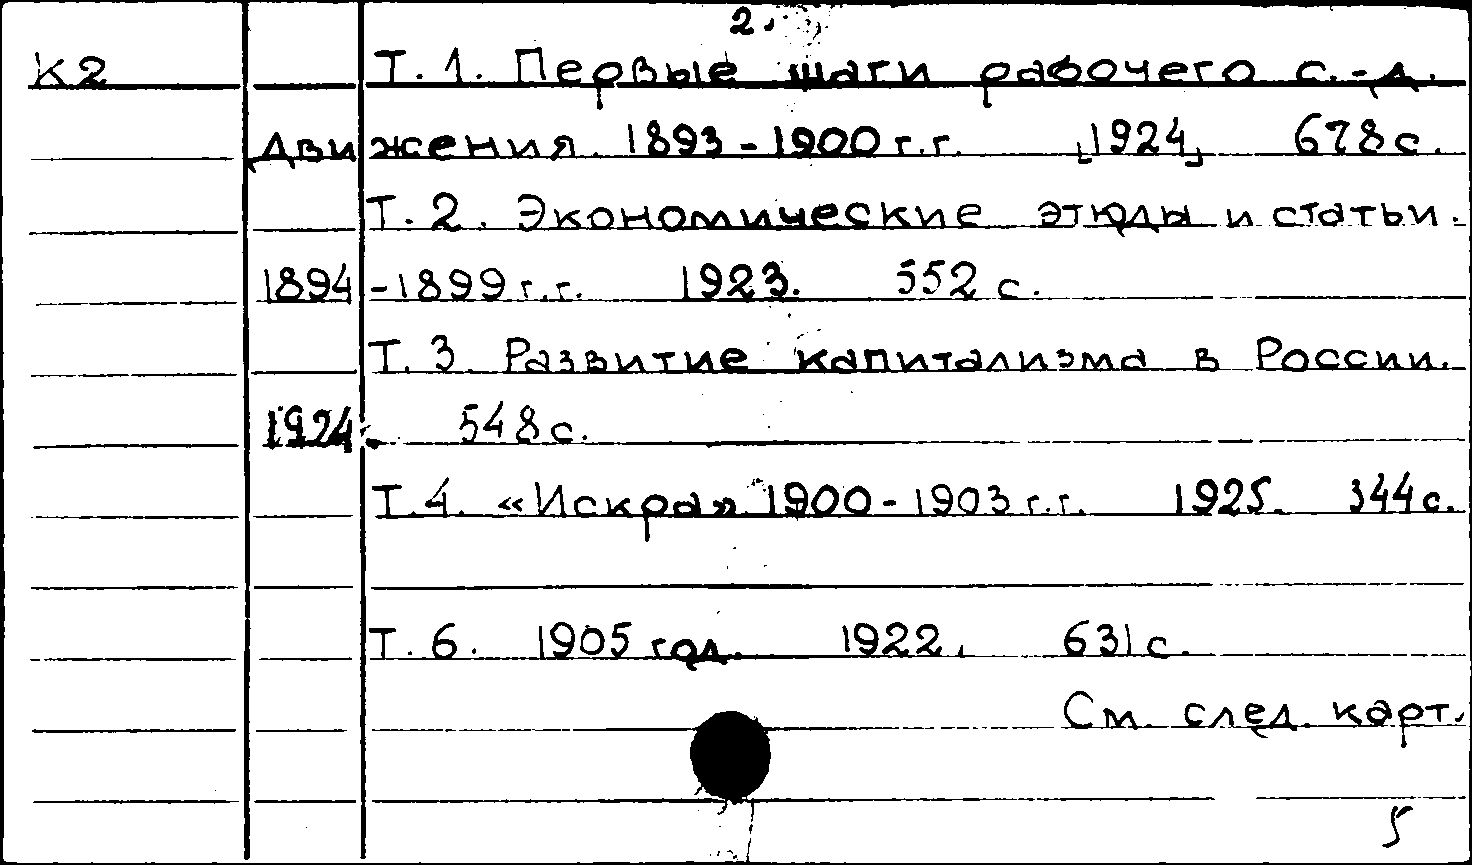 2.
К2 Т. 1. Первые шаги рабочего с.-д.
движения. 1893-1900 г.г. [1924] 678 с.
Т. 2. Экономические этюды и статьи.
1894-1899 г.г. 1923. 552 с.
Т. 3. Развитие капитализма в России.
1924. 548 с.
Т. 4. «Искра» 1900-1903 г.г. 1925. 344 с.
Т. 6. 1905 год. 1922. 631 с.
См. след. карт.
5